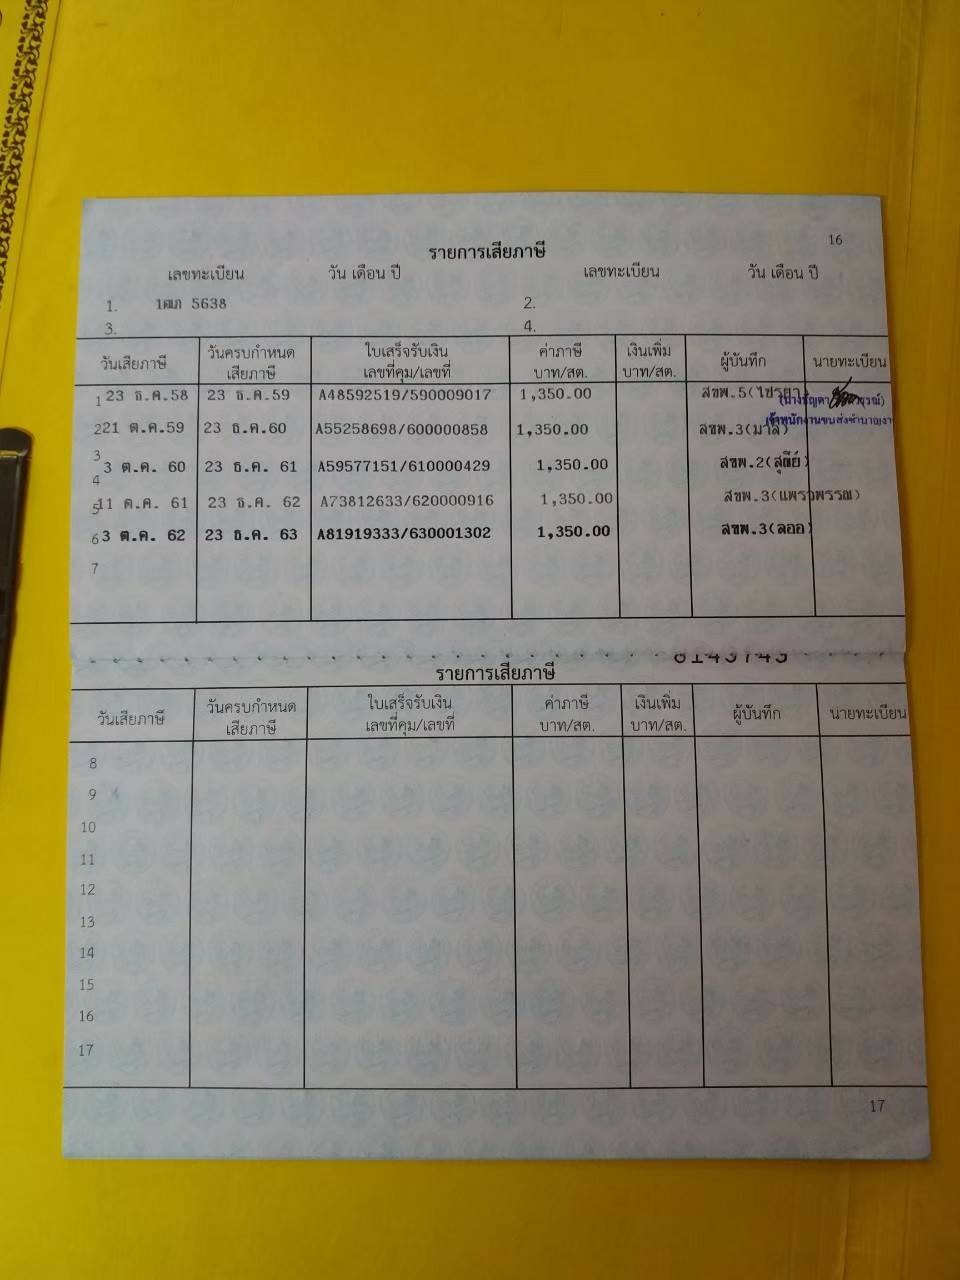 16
รายการเสียภาษี
เลขทะเบียน วัน เดือน ปี เลขทะเบียน วัน เดือน ปี
1. 5638 2.
3. 4.
วันเสียภาษี วันครบกำหนดเสียภาษี ใบเสร็จรับเงิน เลขที่คุม/เลขที่ ค่าภาษี บาท/สต. เงินเพิ่ม บาท/สต. ผู้บันทึก นายทะเบียน
1 23 ธ.ค.58 23 ธ.ค.59 A48592519/590009017 1,350.00 สขพ.5
2 21 ต.ค.59 23 ธ.ค.60 A55258698/600000858 1,350.00 สขพ.3(มาลี)
3
3 ต.ค. 60 23 ธ.ค. 61 A59577151/610000429 1,350.00 สขพ.2(สุณีย์)
4
5 11 ต.ค. 61 23 ธ.ค. 62 A73812633/620000916 1,350.00 สขพ.3(แพรวพรรณ)
6 3 ต.ค. 62 23 ธ.ค. 63 A81919333/630001302 1,350.00 สขพ.3(ลออ)
7
8143743
รายการเสียภาษี
วันเสียภาษี วันครบกำหนดเสียภาษี ใบเสร็จรับเงิน เลขที่คุม/เลขที่ ค่าภาษี บาท/สต. เงินเพิ่ม บาท/สต. ผู้บันทึก นายทะเบียน
8
9
10
11
12
13
14
15
16
17
17